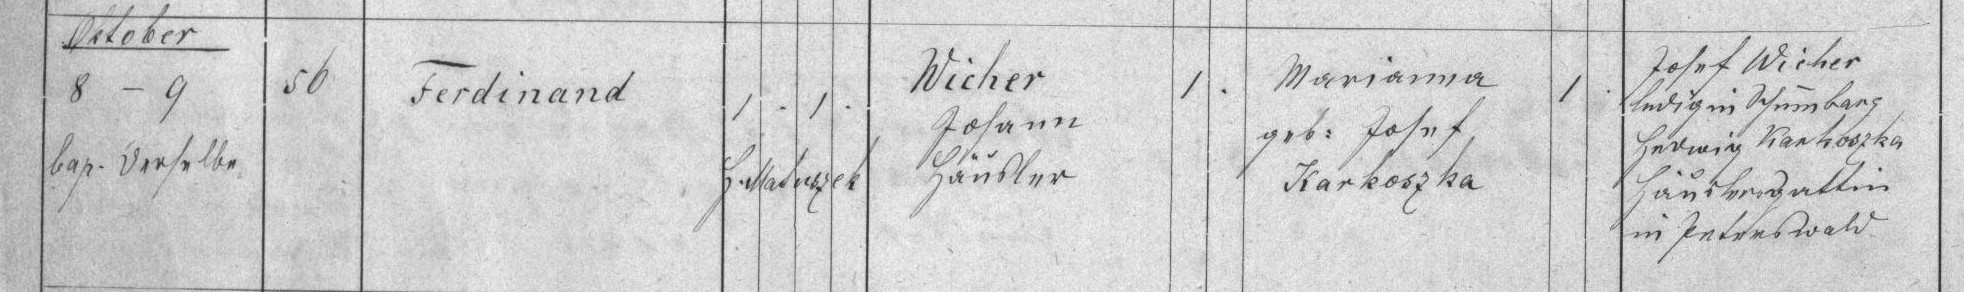 October
8 - 9
bap. Derselbe.
56
Ferdinand
1. 1.
H. Matuszek
Wicher
Johann
Häusler
1.
Marianna
geb: Josef
Karkoszka
1.
Josef Wicher
ledig in Schumbarg
Hedwig Karkoszka
Häuslersgattin
in Peterswald